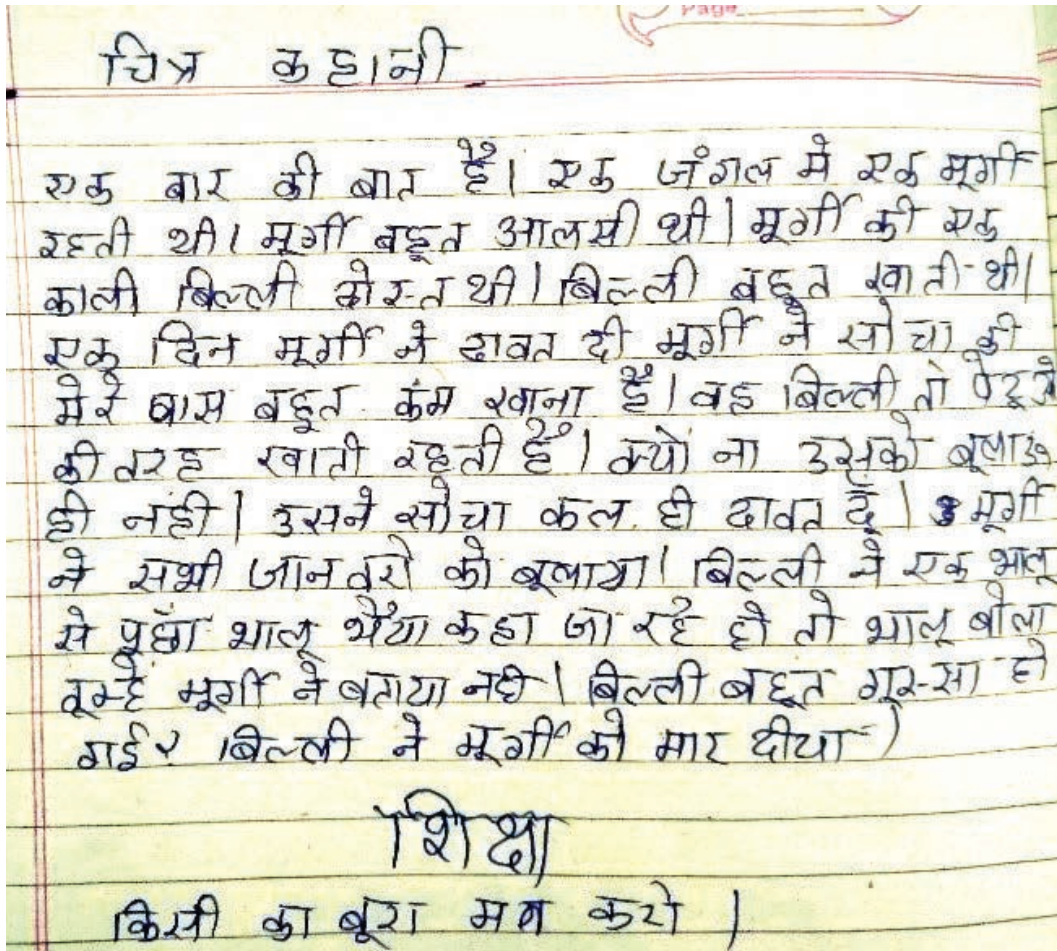 Page
चित्र कहानी
एक बार की बात है। एक जंगल मे एक मूर्गी
रहती थी। मूर्गी बहूत आलसी थी। मूर्गी की एक
काली बिल्ली दोस्त थी। बिल्ली बहूत खाती थी।
एक दिन मूर्गी ने दावत दी मूर्गी ने सोचा की
मेरे बास बहूत कंम खाना है। वह बिल्ली तो
की तरह खाती रहती है। क्यों ना उसको बूलाऊ
ही नंही। उसने सोचा कल ही दावत दूँ। मूर्गी
ने सभी जानवरो को बूलाया। बिल्ली ने एक भालू
से पूछाँ भालू भैया कहा जा रहे हो तो भालू बोला
तूम्हे मूर्गी ने बताया नही। बिल्ली बहूत गूस्सा हो
गई। बिल्ली ने मूर्गी को मार दीया
शिक्षा
किसी का बूरा मत करो।